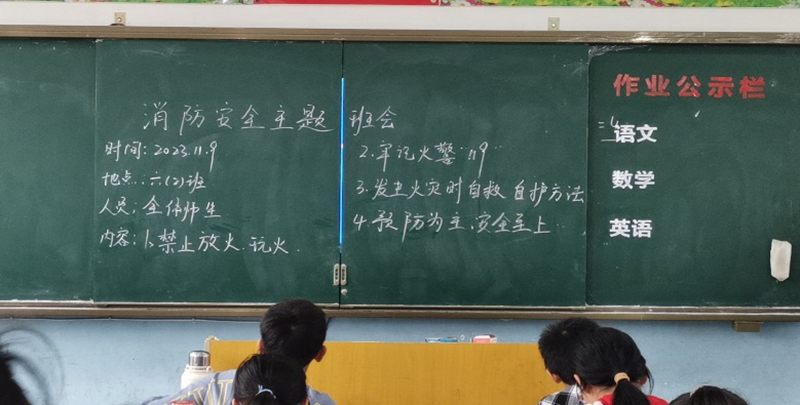 消防安全主题班会
时间：2023.11.9
地点：六(2)班
人员：全体师生
内容：1、禁止放火、玩火.
2.牢记火警"119"
3.发生火灾时自救自护方法
4.预防为主、安全至上
作业公示栏
语文
数学
英语